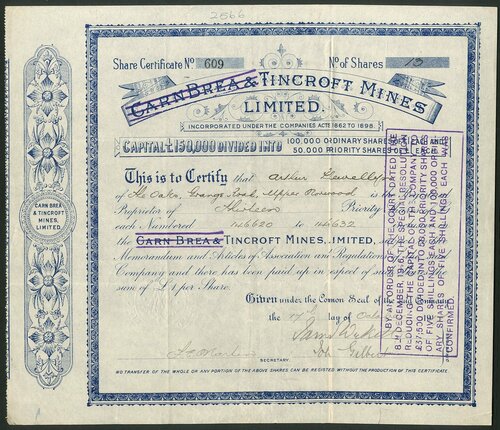 2566
Share Certificate No 609 No of Shares 13
CARN BREA & TINCROFT MINES
LIMITED.
INCORPORATED UNDER THE COMPANIES ACTS 1862 TO 1898.
CAPITAL £150,000 DIVIDED INTO 100,000 ORDINARY SHARES OF £1 EACH AND
50,000 PRIORITY SHARES OF £1 EACH.
This is to Certify that Arthur
of The Oaks, Grange Road, Upper Norwood is the Registered
Proprietor of Thirteen Priority
each Numbered 146620 to 146632
the CARN BREA & TINCROFT MINES, LIMITED,
Memorandum and Articles of Association and Regulations
Company and there has been paid up in respect of
sum of £1 per Share.
Given under the Common Seal of the Company
the 17th day of
SECRETARY.
NO TRANSFER OF THE WHOLE OR ANY PORTION OF THE ABOVE SHARES CAN BE REGISTERED WITHOUT THE PRODUCTION OF THIS CERTIFICATE.
CARN BREA
& TINCROFT
MINES,
LIMITED.
BY AN ORDER OF THE COURT DATED THE
8TH DECEMBER, 1916, THE SPECIAL RESOLUTION
REDUCING THE CAPITAL OF THE COMPANY TO
£37,500 DIVIDED INTO 50,000 PRIORITY SHARES
OF FIVE SHILLINGS EACH AND 100,000 ORDIN-
ARY SHARES OF FIVE SHILLINGS EACH WAS
CONFIRMED.